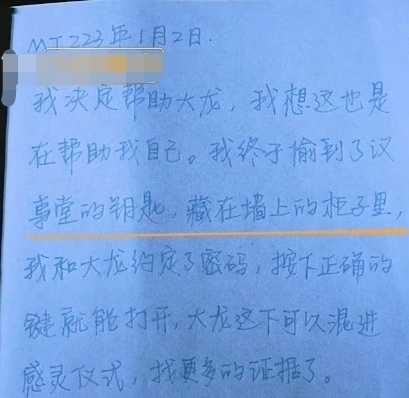 MTZ23年1月2日.
我决定帮助大龙，我想这也是
在帮助我自己。我终于偷到了议
事堂的钥匙，藏在墙上的柜子里，
我和大龙约定了密码，按下正确的
键就能打开，大龙这下可以混进
感灵仪式，找更多的证据了。